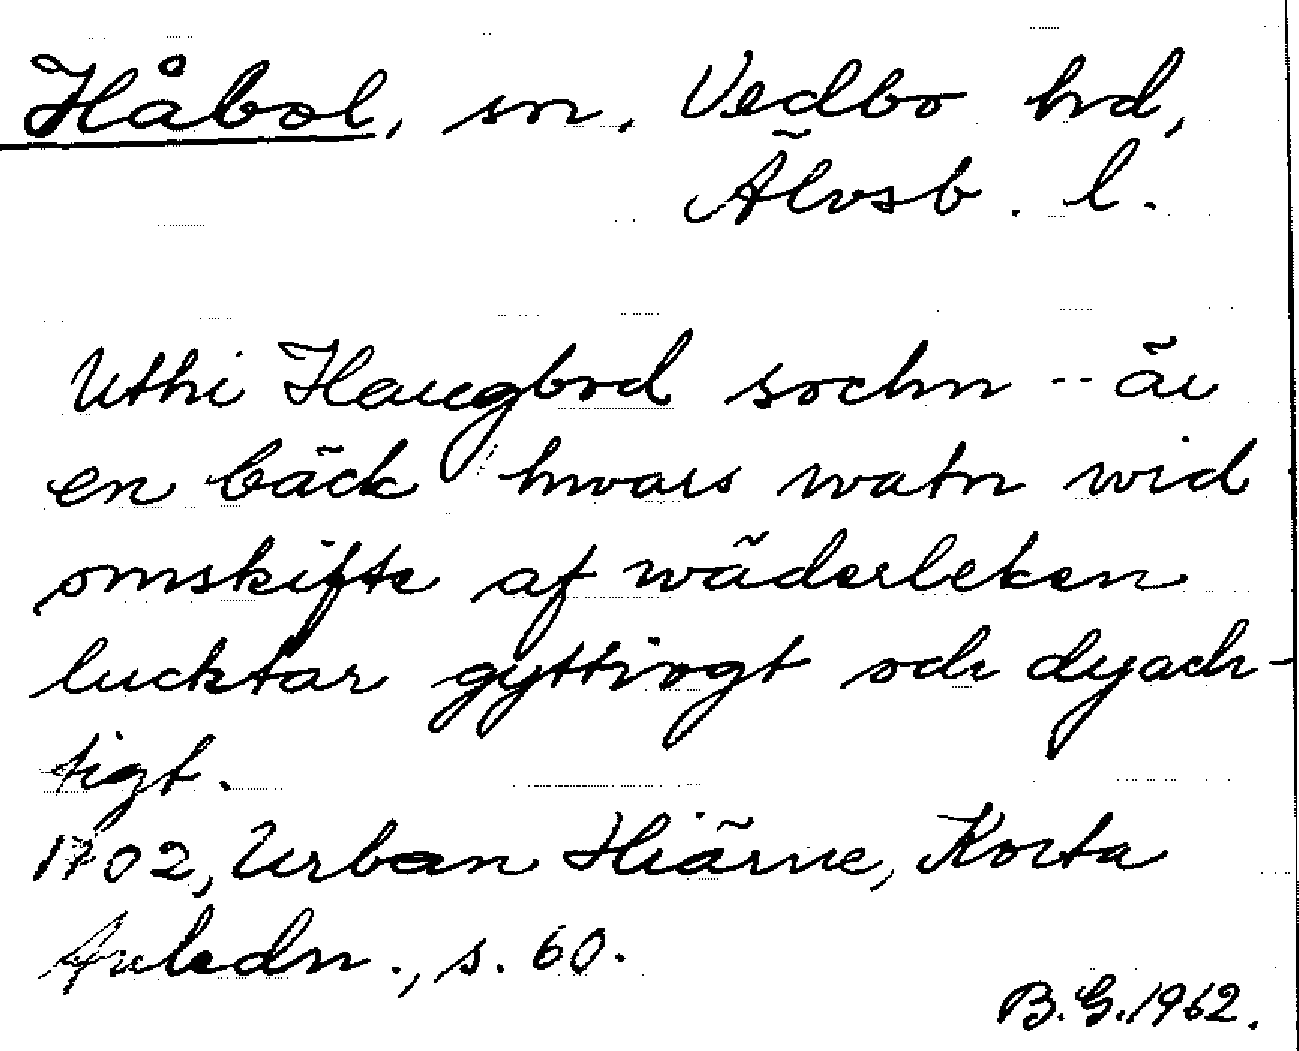 Håbol, sn. Vedbo hd,
Älvsb. l.
Uthi Haugbod sochn -- är
en bäck hvars watn wid
omskifte af wäderleken
lucktar gyttiogt och dyach-
tigt.
1702, Urban Hiärne, Korta
Anledn., s. 60.
B.G. 1962.